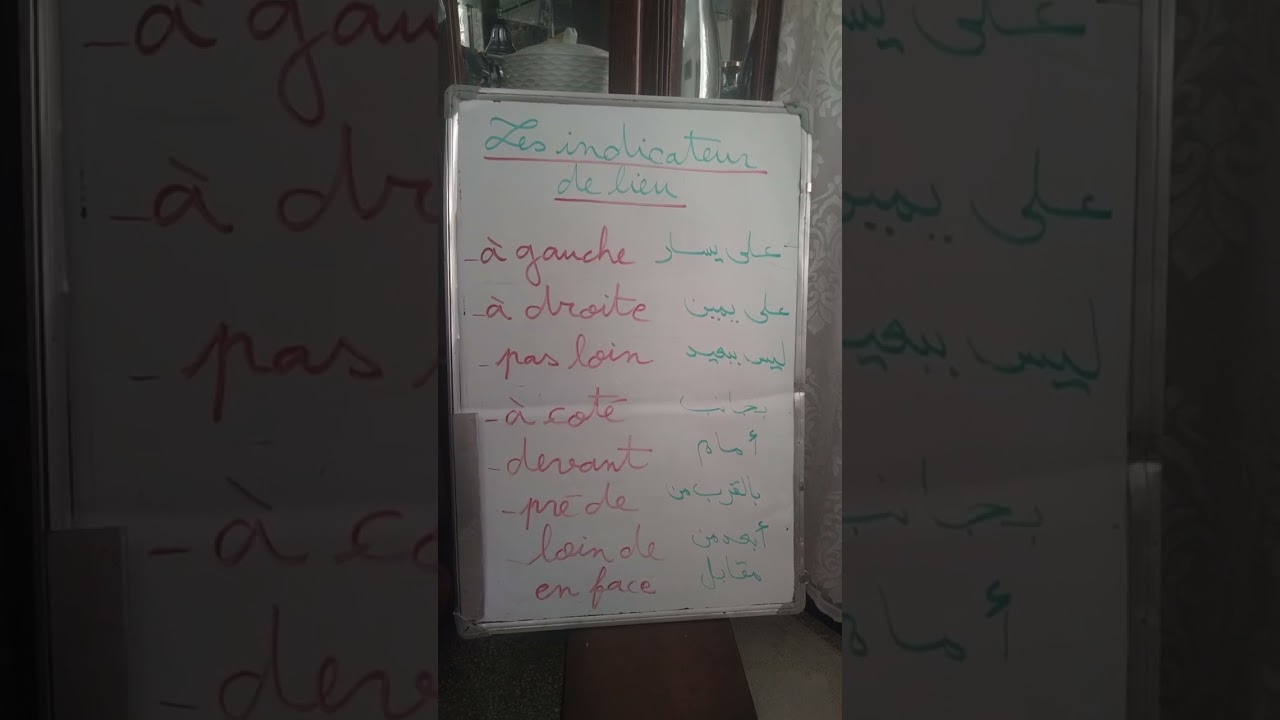 Les indicateur
de lieu
- à gauche على يسار
- à droite على يمين
- pas loin ليس ببعيد
- à coté بجانب
- devant أمام
- pré de بالقرب من
loin de أبعد من
en face مقابل